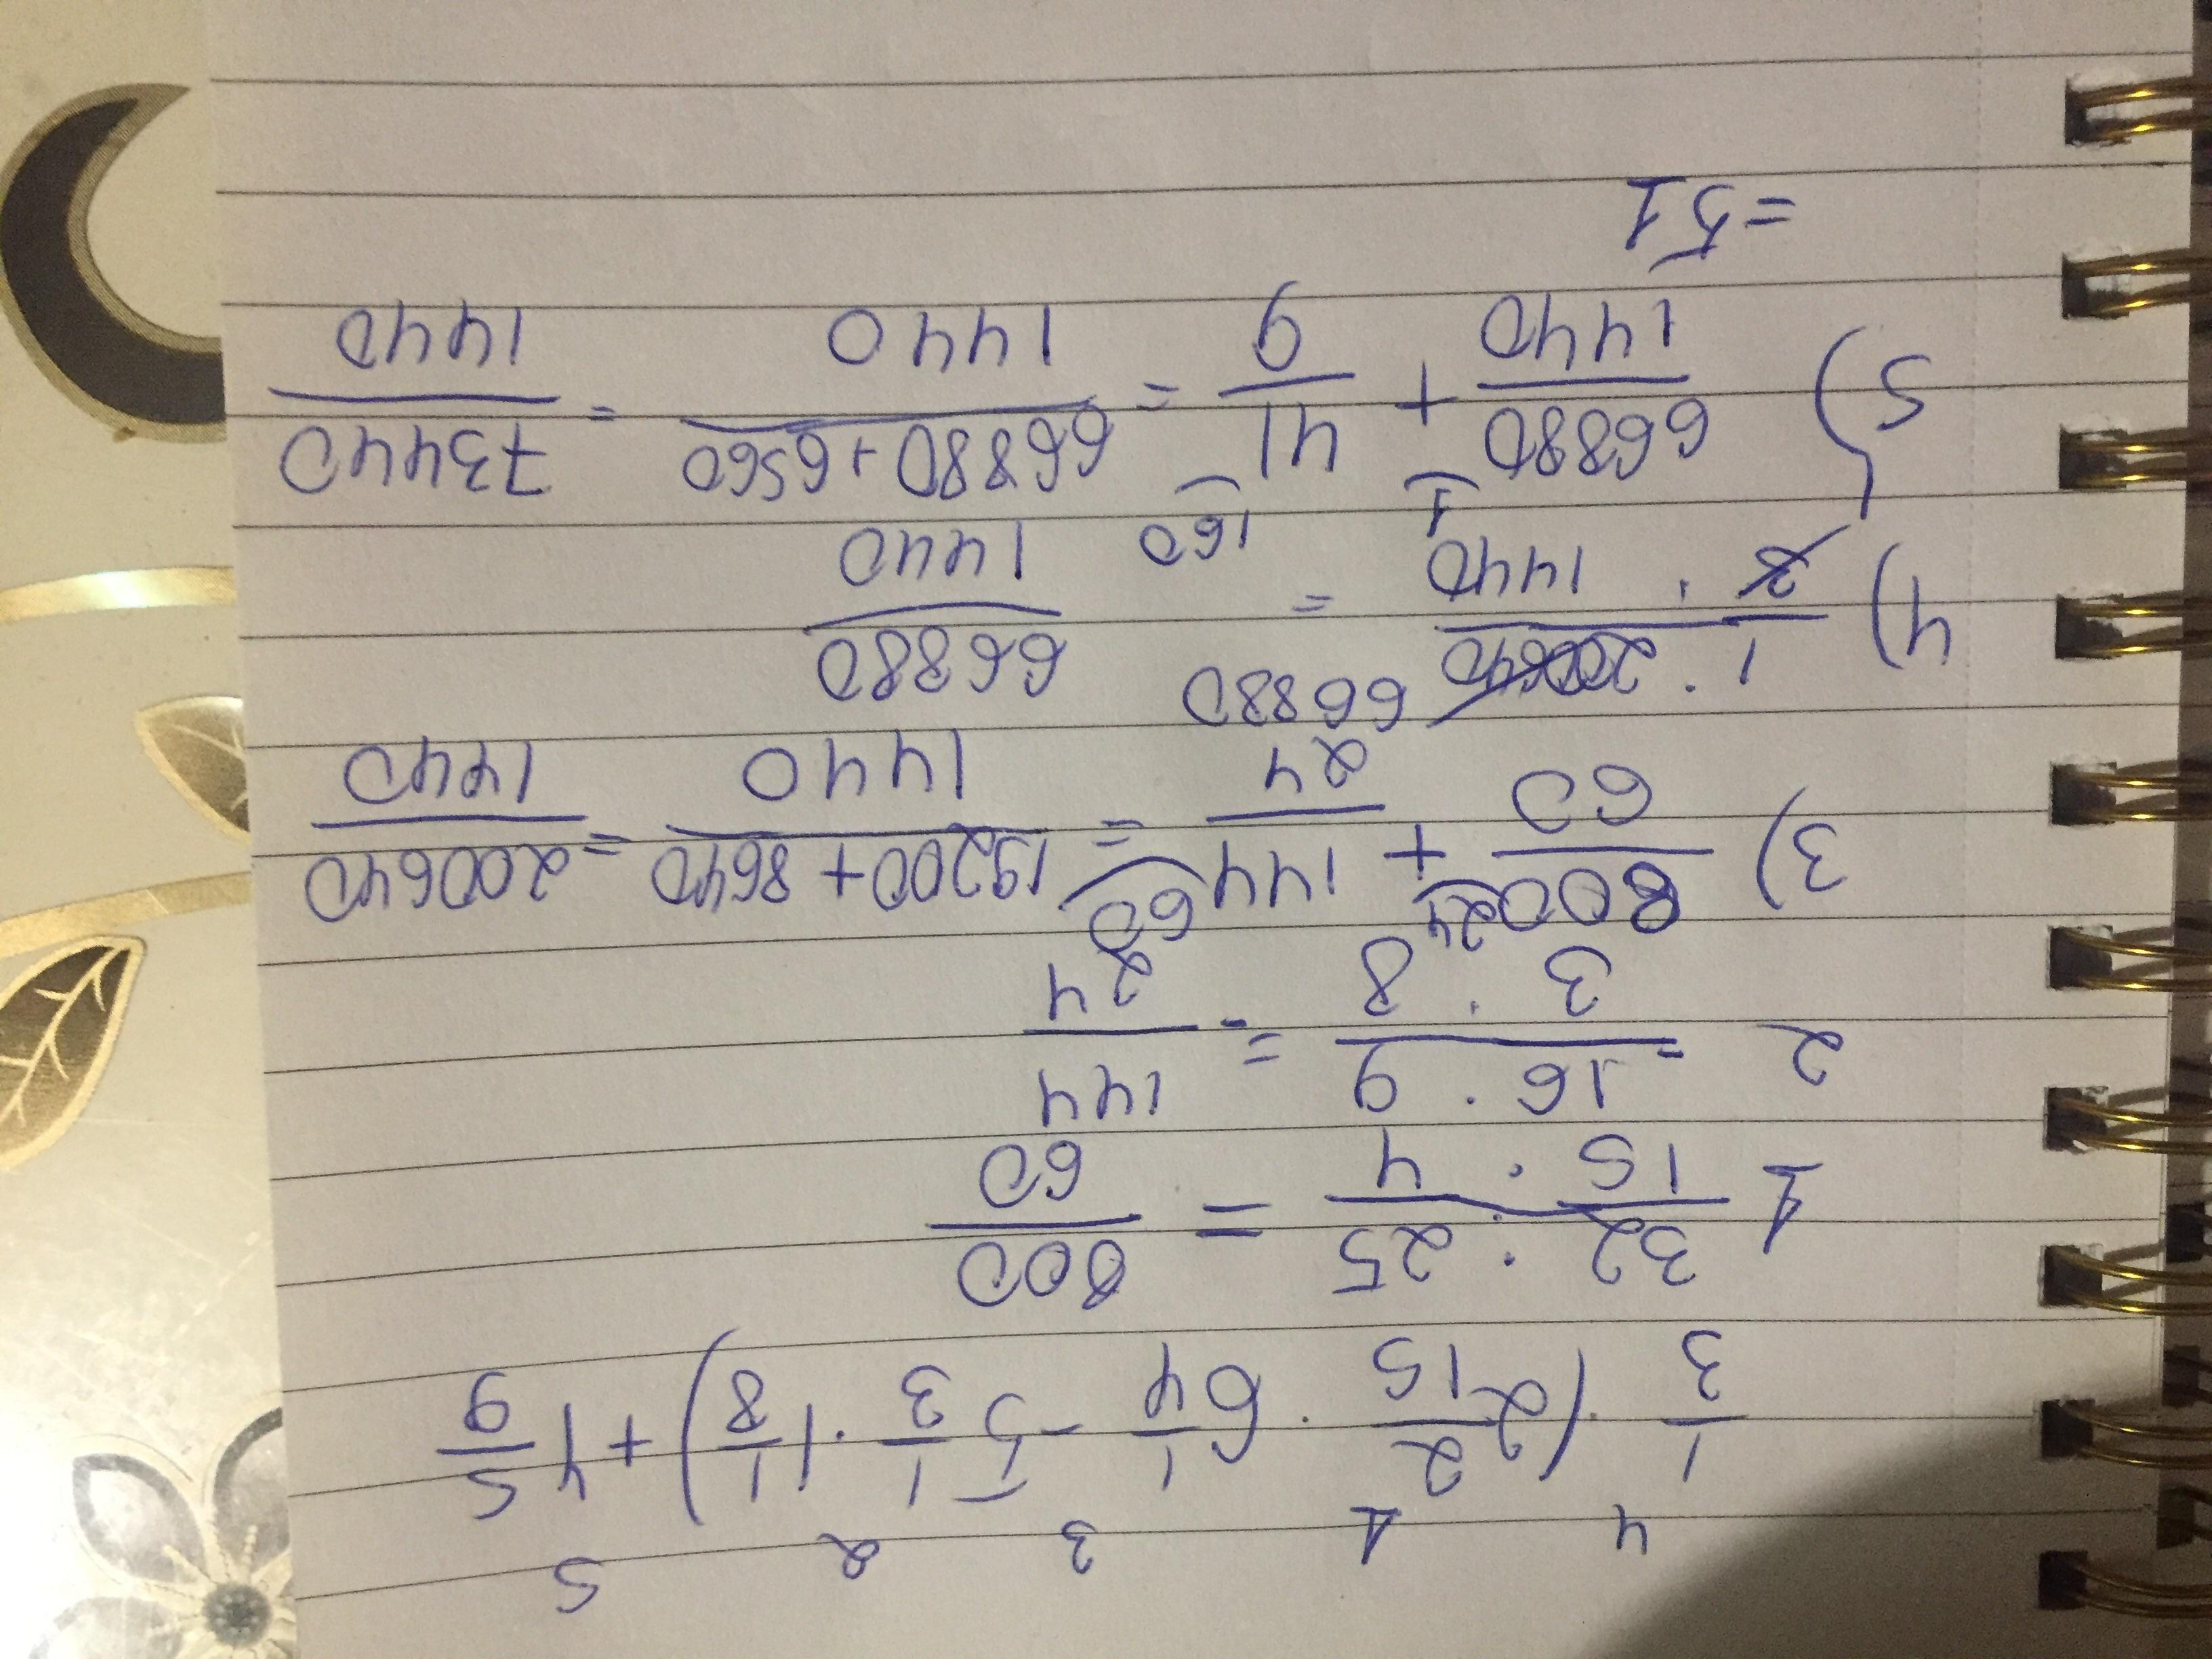 4 1 3 2 5
1/3 · (2 2/15 · 6 1/4 - 5 1/3 · 1 1/8) + 4 5/9
1 32 · 25 / 15 · 4 = 800/60
2 = 16 · 9 / 3 · 8 = 144/24
3) 800/60 24 + 144/24 60 = 19200 + 8640 / 1440 = 200640/1440
4) 1 · 200640 / 3 · 1440 66880 = 66880/1440
5) 66880/1440 1 + 41/9 160 = 66880 + 6560 / 1440 = 73440/1440
= 51